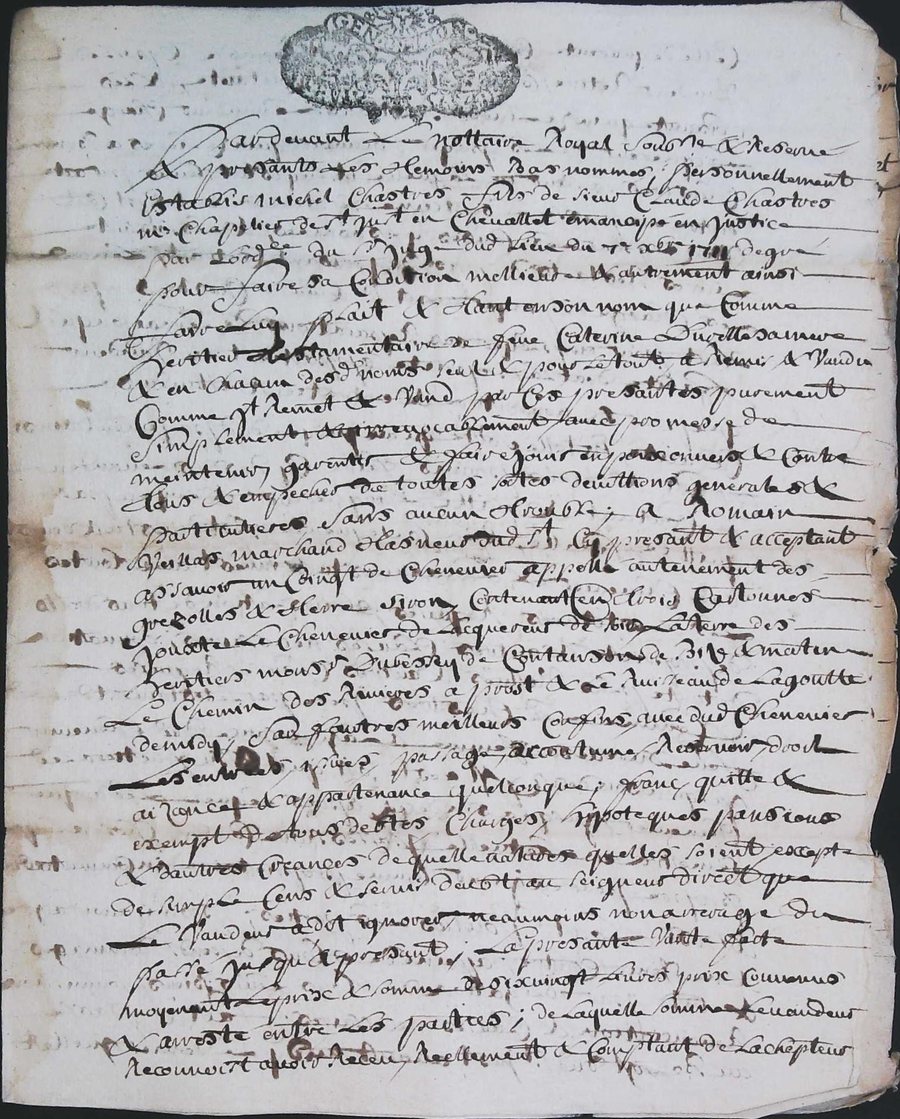 Pardevant Le nottaire Royal soub.ne & Reservé
& presants Les temoins Bas nommes, personnellement
Establis michel Chastres fils de sieur Claude Chastres
me Chapelier de st Just en Chevallet emancipé en Justice
par du sr Juge dud Lieu du 7e xbre degré
pour faire sa Condition meillieure & autrement ainsi
faire Luy plait & tant en son nom que Comme
heritier testamentaire de feue Caterine sa mere
& en Chacun desd noms seul & pour le tout a Remis & Vandu
Comme Il Remet & Vand par Ces presantes purement
simplement & irrevocablement avec promesse de
meintenir, garentir & faire jouir envers & Contre
tous & empecher de toutes sortes devictions generales &
particullieres sans aucun trouble, a Romain
marchand dud st Icy presant & acceptant
assavoir un de Chenevier appellé au tenement des
& terre Contenant en trois Cartonnes
Jouxte Le Chenevier de Lacquereur de La terre des
heritiers de de & matin
Le Chemin des a & Le Ruisseau de Lagoutte
demidy, sauf autres meilleurs Confins, avec dud Chenevier
Les entrées, issues, passage, accoutumé, droit
aizance & appartenance quelconque, franc, quitte &
exempt de tous debtes, Charges, hypoteques pansions
& dautres Creances de quelle natures quelles soient excepte
de simple Cens & servis deust au seigneur direct que
Le Vandeur a dit ignorer, neaumoins non arrerage du
passé jusqu'a presant, La presante Vante fecte
moyenant Le prix & somme de sixvingt Livres prix Convenus
& arresté entre Les parties; de Laquelle somme Levandeur
Reconnoist avoir Receu, Reellement & Comptant de Lachepteur